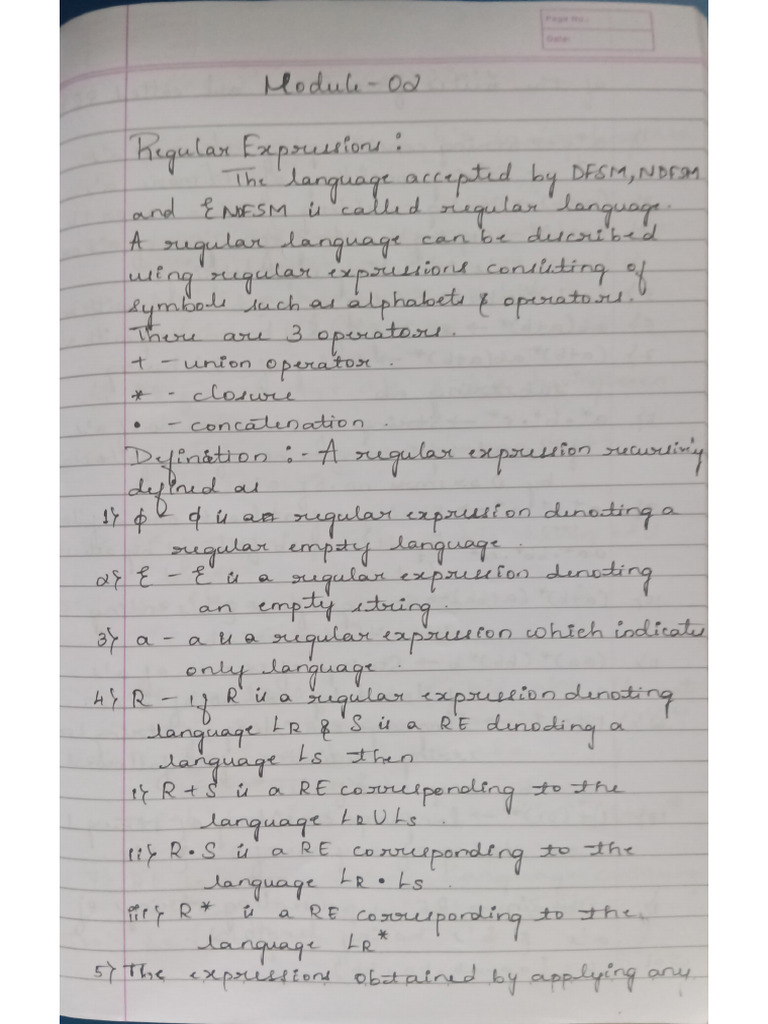 Page No:
Date:
Module-02
Regular Expressions:
The language accepted by DFSM, NDFSM
and ƐNDFSM is called regular language.
A regular language can be described
using regular expressions consisting of
symbols such as alphabets & operators.
There are 3 operators.
+ - union operator.
* - closure
• - concatenation.
Definition :- A regular expression recursively
defined as
1) φ - φ is a regular expression denoting a
regular empty language.
2) Ɛ - Ɛ is a regular expression denoting
an empty string.
3) a - a is a regular expression which indicate
only language.
4) R - if R is a regular expression denoting
language LR & S is a RE denoding a
language LS then
i) R + S is a RE corresponding to the
language LR U LS.
ii) R • S is a RE corresponding to the
language LR • LS.
iii) R* is a RE corresponding to the
language LR*
5) The expressions obtained by applying any